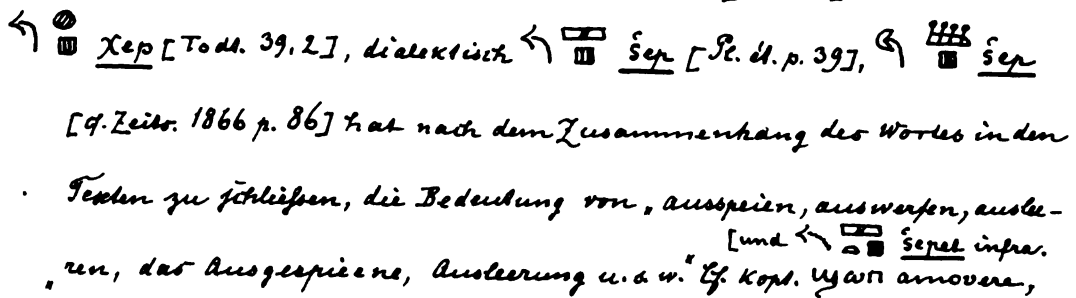 χep [Todt. 39,2], dialektisch šep [Pl. ét. p. 39], šep
[d. Zeits. 1866 p. 86] hat nach dem Zusammenhang des Wortes in den
Texten zu schließen, die Bedeutung von „ausspeien, auswerfen, auslee-
[und šepet infra.
„ren, das Ausgespieene, Ausleerung u. s. w.“ Cf. Kopt. ϣⲱⲡ amovere,